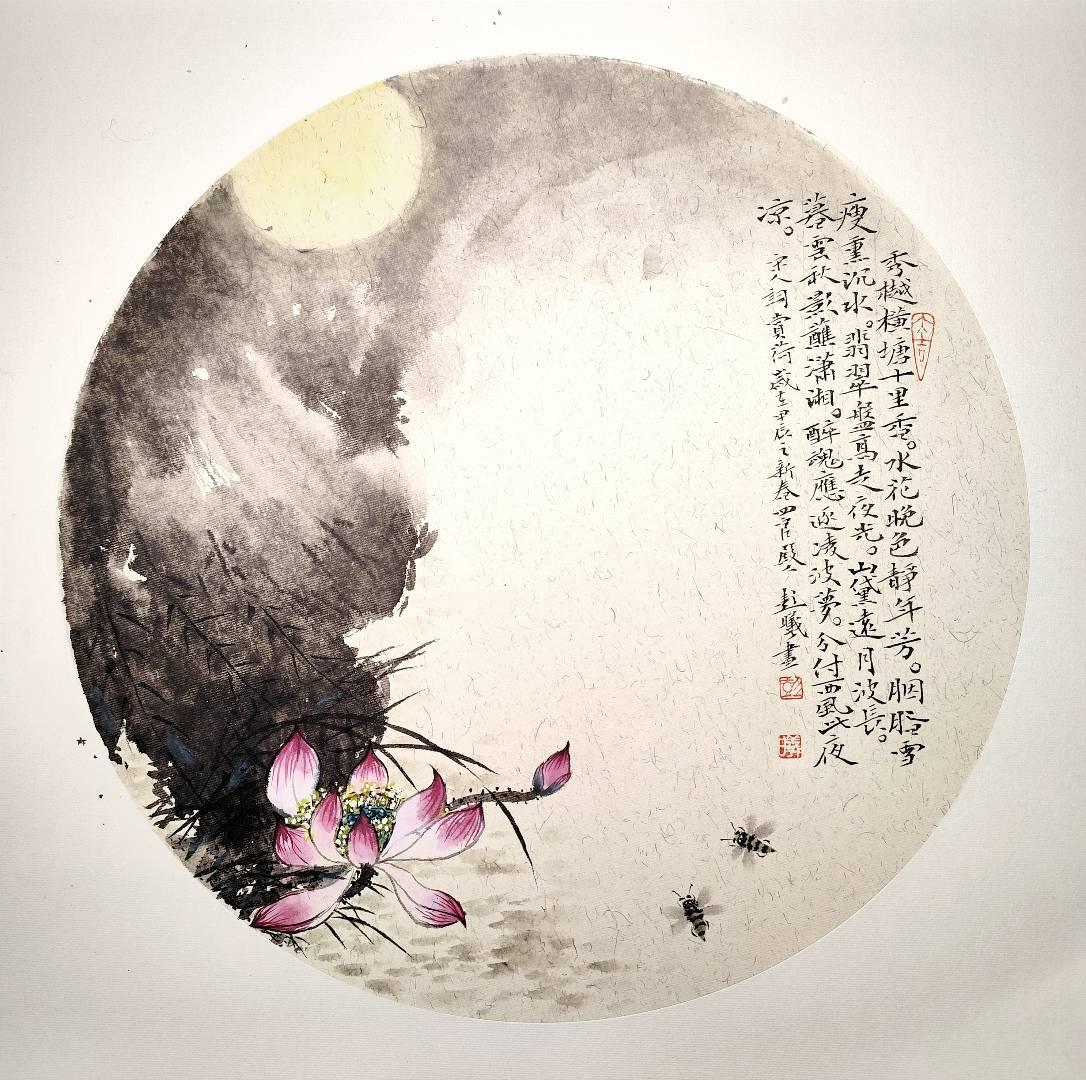 秀樾橫塘十里香。水花晚色靜年芳。胭脂雪
瘦熏沉水。翡翠盤高走夜光。山黛遠月波長。
暮雲秋影蘸瀟湘。醉魂應逐凌波夢。分付西風此夜
凉。宋人詞賞荷歲在甲辰之新春四官殿 彭曦畫
大吉
彭